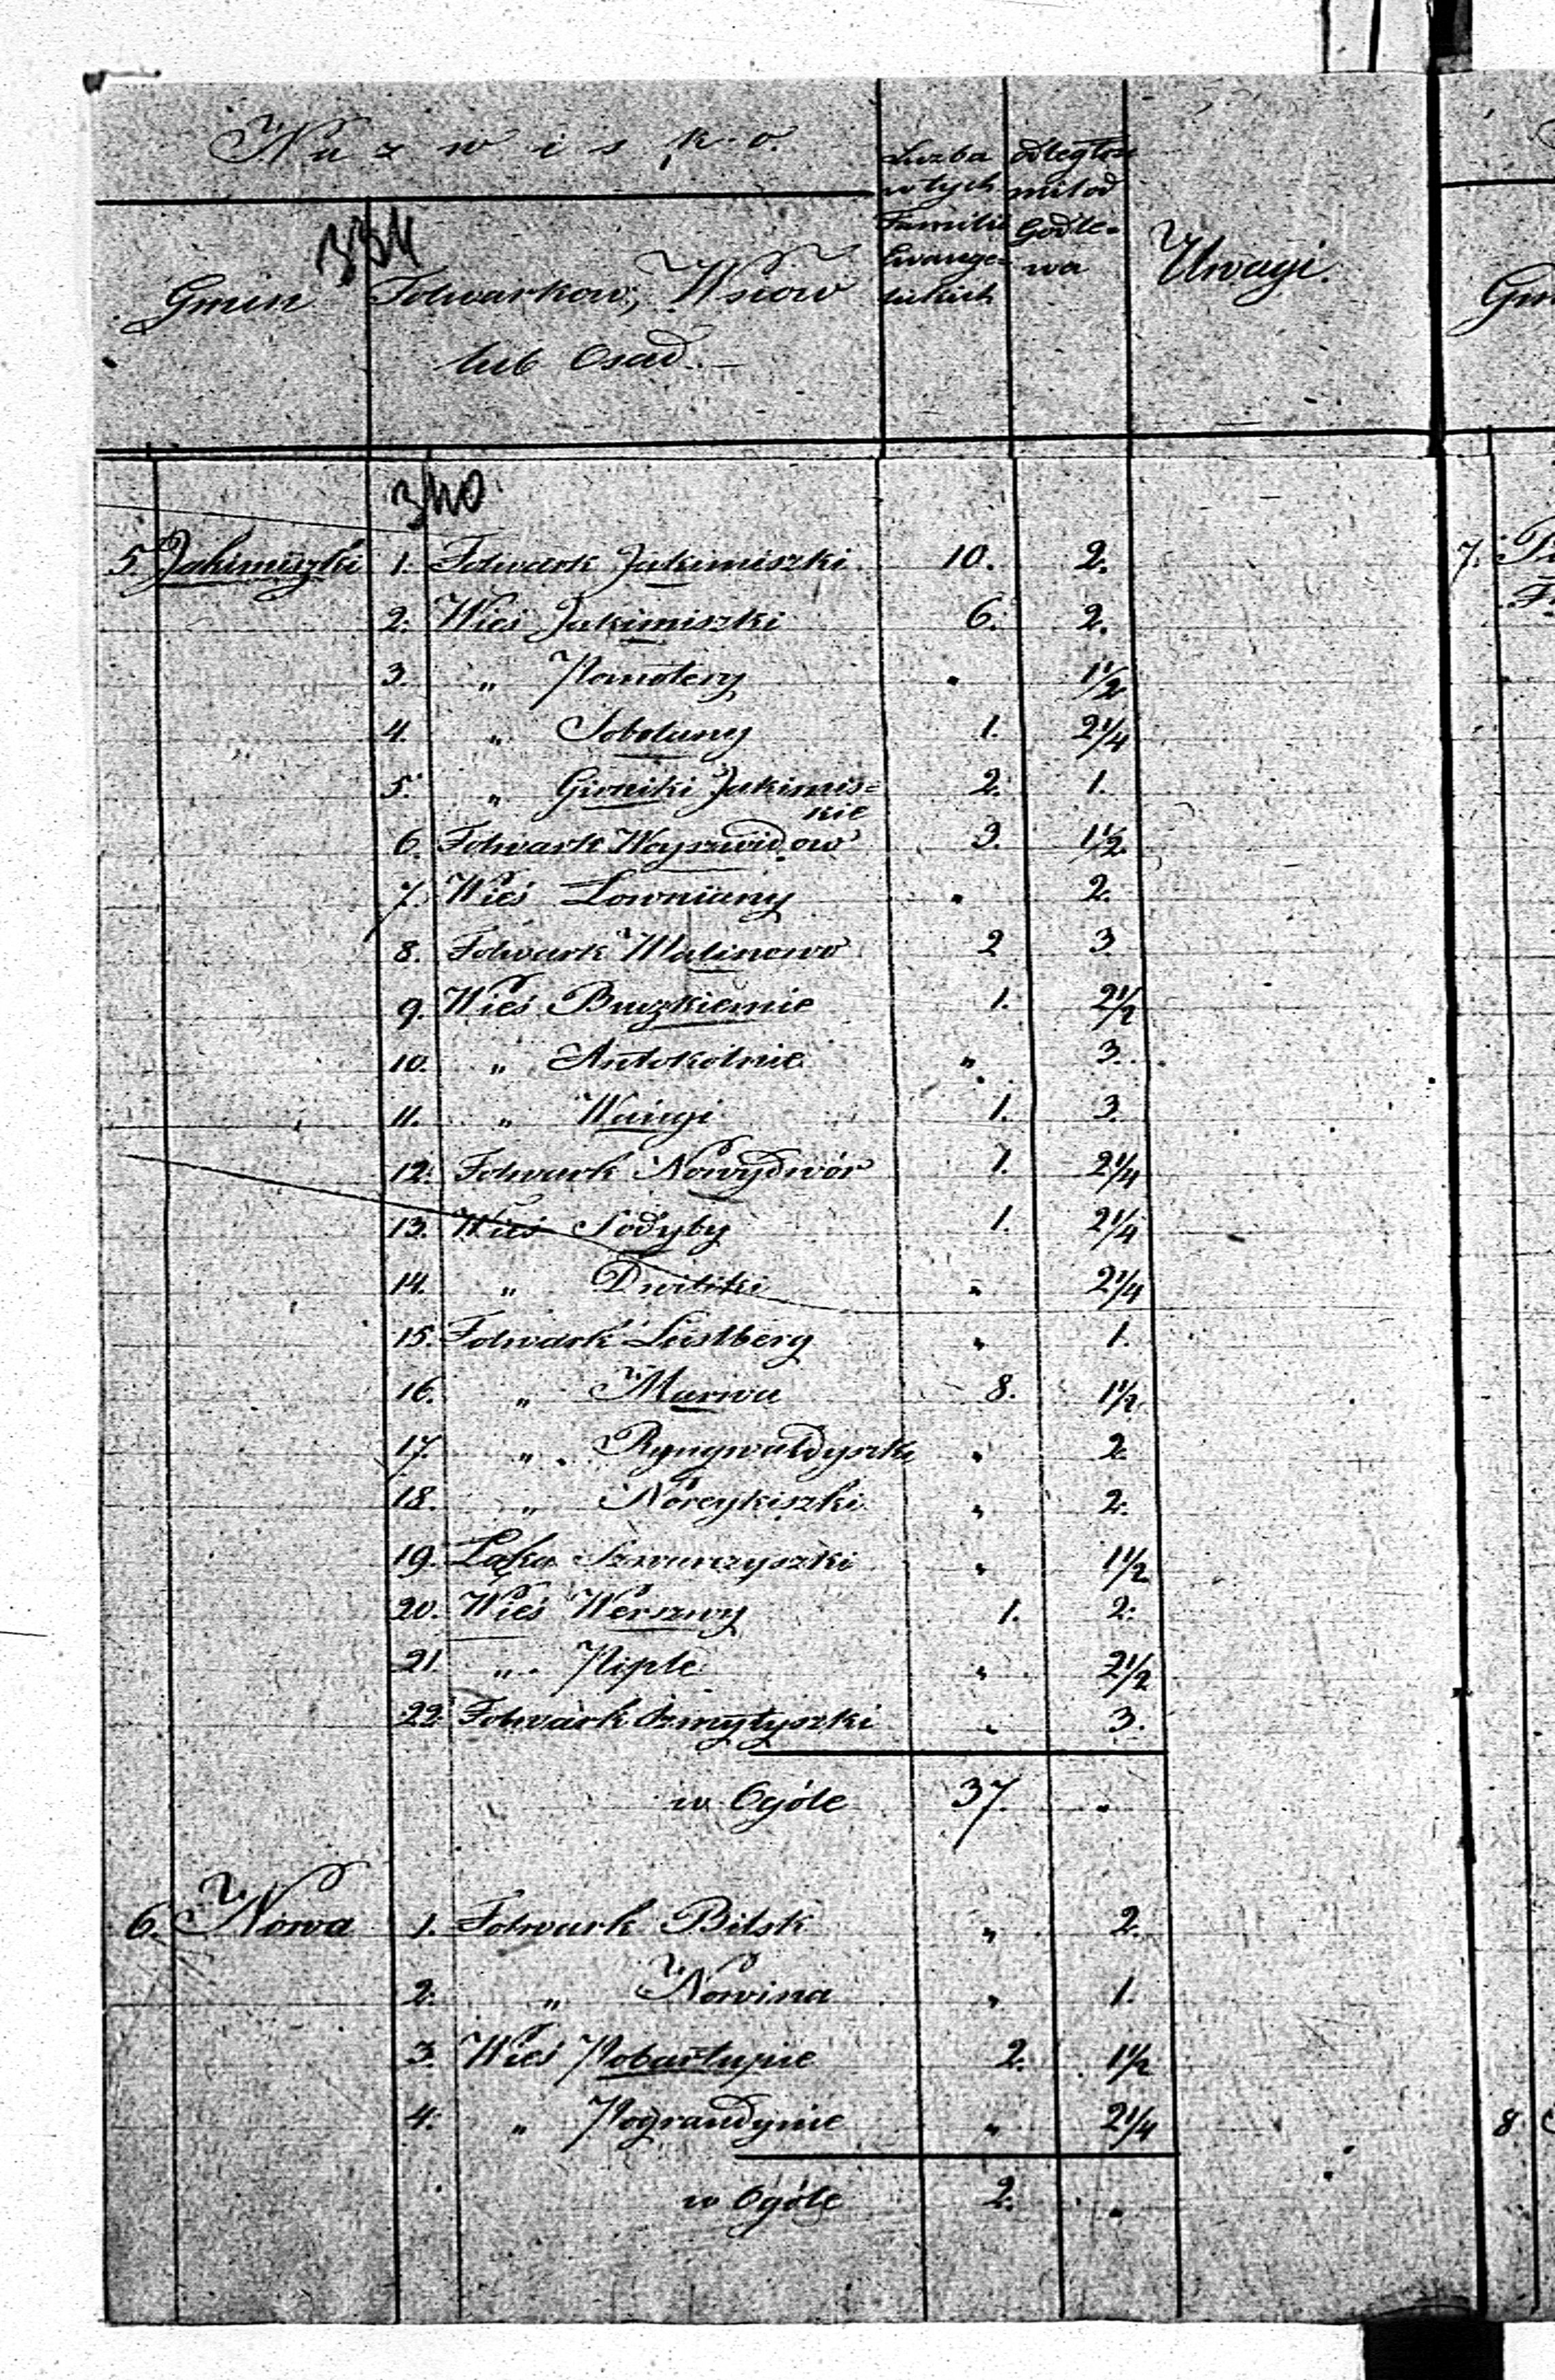 Nazwisko.
334
Gmin
Folwarkow, Wsiow
lub Osad.
Liczba
w tych
Familii
Ewange=
lickich
odległość
mil od
Godle=
wa
Uwagi.
340
5. Jakimiszki 1. Folwark Jakimiszki 10. 2.
2. Wieś Jakimiszki 6. 2.
3. " Pomotery " 1½
4. " Soboluny 1. 2¼
5. " Giraiki Jakimis=
kie 2. 1.
6. Folwark Woyszwidow 3. 1½
7. Wieś Lowniany " 2.
8. Folwark Malinowo 2 3
9. Wieś Buczkiemie 1. 2½
10. " Antokolnie " 3.
11. " Waingi 1. 3
12. Folwark Nowydwór 1. 2¼
13. Wieś Sodyby 1. 2¼
14. " Dwiliki " 2¼
15. Folwark Lustberg " 1.
16. " Marwa 8. 1½
17. " Ryngwałdyszki " 2
18. " Noreykiszki " 2.
19. Łąka Szwarczyszki " 1½
20. Wieś Werszwy 1. 2.
21. " Piple " 2½
22. Folwark Szmytyszki " 3.
w Ogóle 37. "
6. Nowa 1. Folwark Bilsk " 2.
2. " Nowina " 1.
3. Wieś Pobartupie 2. 1½
4. " Pograudynie " 2¼
w Ogóle 2. "
Gm
7.
8